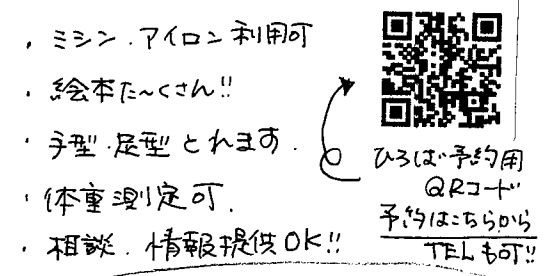 ・ミシン・アイロン利用可
・絵本た～くさん!!
・手型・足型とれます.
・体重測定可.
・相談・情報提供OK!!
ひろば予約用
QRコード
予約はこちらから
TELも可!!